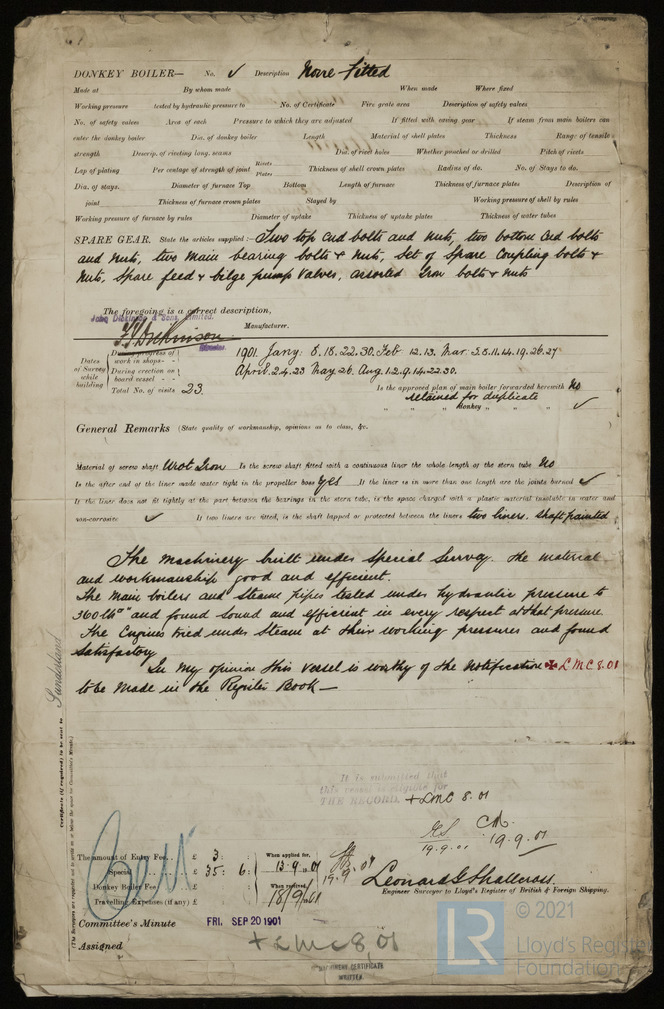 DONKEY BOILER— No. ✓ Description None Fitted
Made at By whom made When made Where fixed
Working pressure tested by hydraulic pressure to No. of Certificate Fire grate area Description of safety valves
No. of safety valves Area of each Pressure to which they are adjusted If fitted with easing gear If steam from main boilers can
enter the donkey boiler Dia. of donkey boiler Length Material of shell plates Thickness Range of tensile
strength Descrip. of riveting long. seams Dia. of rivet holes Whether punched or drilled Pitch of rivets
Lap of plating Per centage of strength of joint Rivets Plates Thickness of shell crown plates Radius of do. No. of Stays to do.
Dia. of stays. Diameter of furnace Top Bottom Length of furnace Thickness of furnace plates Description of
joint Thickness of furnace crown plates Stayed by Working pressure of shell by rules
Working pressure of furnace by rules Diameter of uptake Thickness of uptake plates Thickness of water tubes
SPARE GEAR. State the articles supplied:— Two top end bolts and nuts, two bottom end bolts
and nuts, two main bearing bolts & nuts, Set of Spare Coupling bolts &
nuts, Spare feed & bilge pump valves, assorted Iron bolts & nuts
The foregoing is a correct description,
John Dickinson & Sons, Limited.
Manufacturer.
Dates of Survey while building
During progress of work in shops- -
1901. Jany: 8.18.22.30. Feb 12.13. Mar. 5.8.11.14.19.26.27
During erection on board vessel - - -
April. 2.4.23 May 26. Aug. 1.2.9.14.22.30.
Total No. of visits 23.
Is the approved plan of main boiler forwarded herewith No
retained for duplicate
" " " Donkey " " " ✓
General Remarks (State quality of workmanship, opinions as to class, &c.
Material of screw shaft Wrot Iron Is the screw shaft fitted with a continuous liner the whole length of the stern tube No
Is the after end of the liner made water tight in the propeller boss Yes If the liner is in more than one length are the joints burned ✓
If the liner does not fit tightly at the part between the bearings in the stern tube, is the space charged with a plastic material insoluble in water and
non-corrosive ✓ If two liners are fitted, is the shaft lapped or protected between the liners two liners. Shaft painted
The Machinery built under Special Survey. The material
and workmanship good and efficient.
The Main boilers and Steam pipes tested under hydraulic pressure to
360 lb□" and found sound and efficient in every respect at that pressure.
The Engines tried under Steam at their working pressures and found
Satisfactory
In my opinion this vessel is worthy of the Notification ✠ LMC 8.01
to be made in the Register Book—
Certificate (if required) to be sent to Sunderland
It is submitted that
this vessel is eligible for
THE RECORD. + LMC 8.01
19.9.01
19.9.01
The amount of Entry Fee. . £ 3 : :
Special £ 35 : 6 :
Donkey Boiler Fee £ : :
Travelling Expenses (if any) £ : :
When applied for,
13.9.01
When received,
18/9/01
19.9.01
Leonard G Shallcross.
Engineer Surveyor to Lloyd's Register of British & Foreign Shipping.
Committee's Minute FRI. SEP 20 1901
Assigned + LMC 8 01
MACHINERY CERTIFICATE
WRITTEN.
LR
© 2021
Lloyd's Register
Foundation